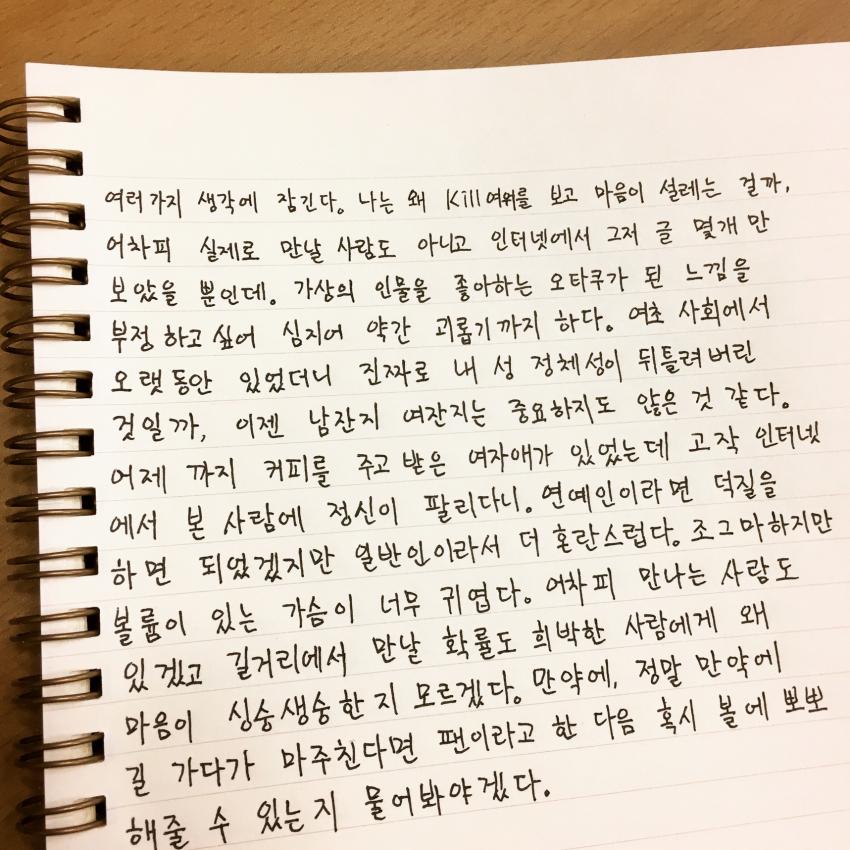 여러가지 생각에 잠긴다. 나는 왜 Kill여위를 보고 마음이 설레는 걸까,
어차피 실제로 만날 사람도 아니고 인터넷에서 그저 글 몇개 만
보았을 뿐인데. 가상의 인물을 좋아하는 오타쿠가 된 느낌을
부정하고싶어 심지어 약간 괴롭기까지 하다. 여초 사회에서
오랫동안 있었더니 진짜로 내 성 정체성이 뒤틀려버린
것일까, 이젠 남잔지 여잔지는 중요하지도 않은 것 같다.
어제 까지 커피를 주고 받은 여자애가 있었는데 고작 인터넷
에서 본 사람에 정신이 팔리다니. 연예인이라면 덕질을
하면 되었겠지만 일반인이라서 더 혼란스럽다. 조그마하지만
볼륨이 있는 가슴이 너무 귀엽다. 어차피 만나는 사람도
있겠고 길거리에서 만날 확률도 희박한 사람에게 왜
마음이 싱숭생숭한지 모르겠다. 만약에, 정말 만약에
길 가다가 마주친다면 팬이라고 한 다음 혹시 볼에 뽀뽀
해줄 수 있는지 물어봐야겠다.